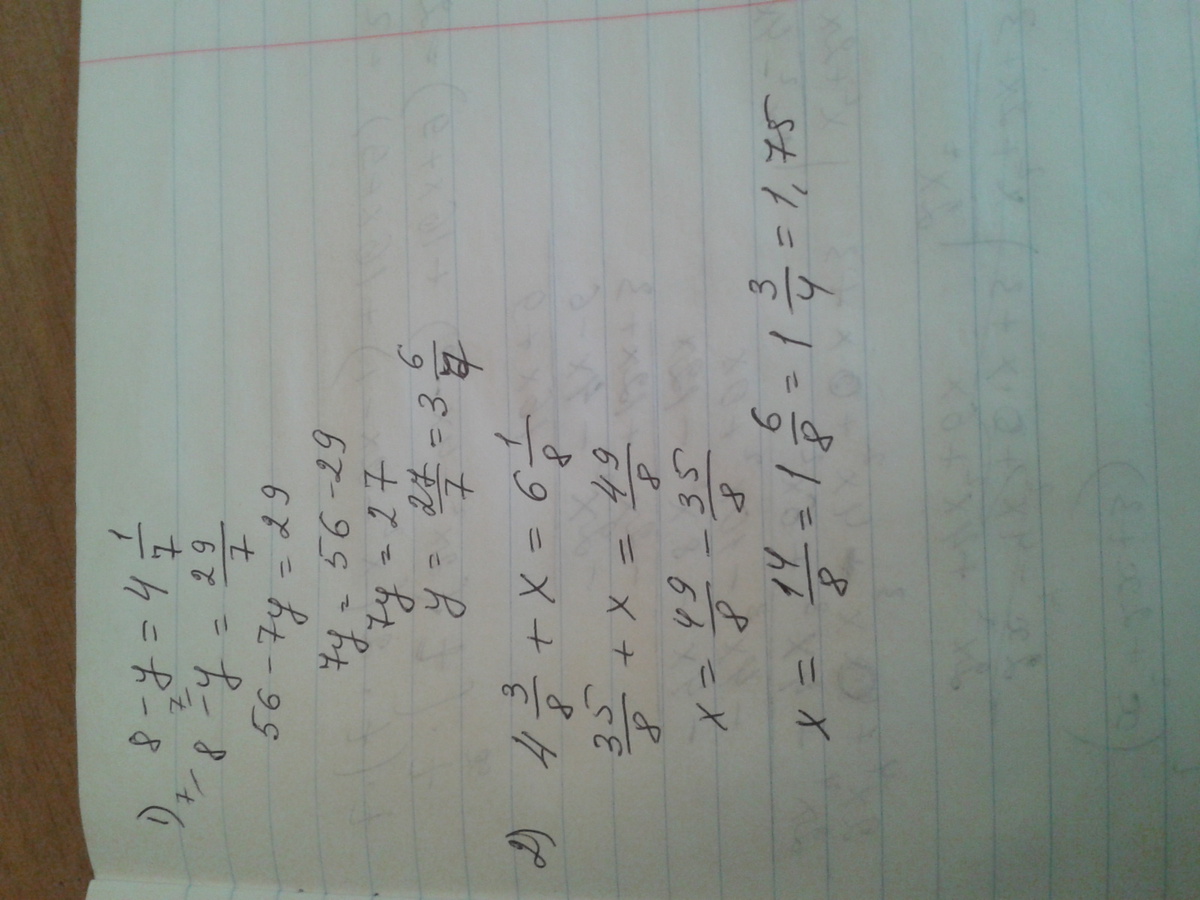 1) 8 - y = 4 1/7
7/ 8 - 7/ y = 29/7
56 - 7y = 29
7y = 56 - 29
7y = 27
y = 27/7 = 3 6/7
2) 4 3/8 + x = 6 1/8
35/8 + x = 49/8
x = 49/8 - 35/8
x = 14/8 = 1 6/8 = 1 3/4 = 1,75